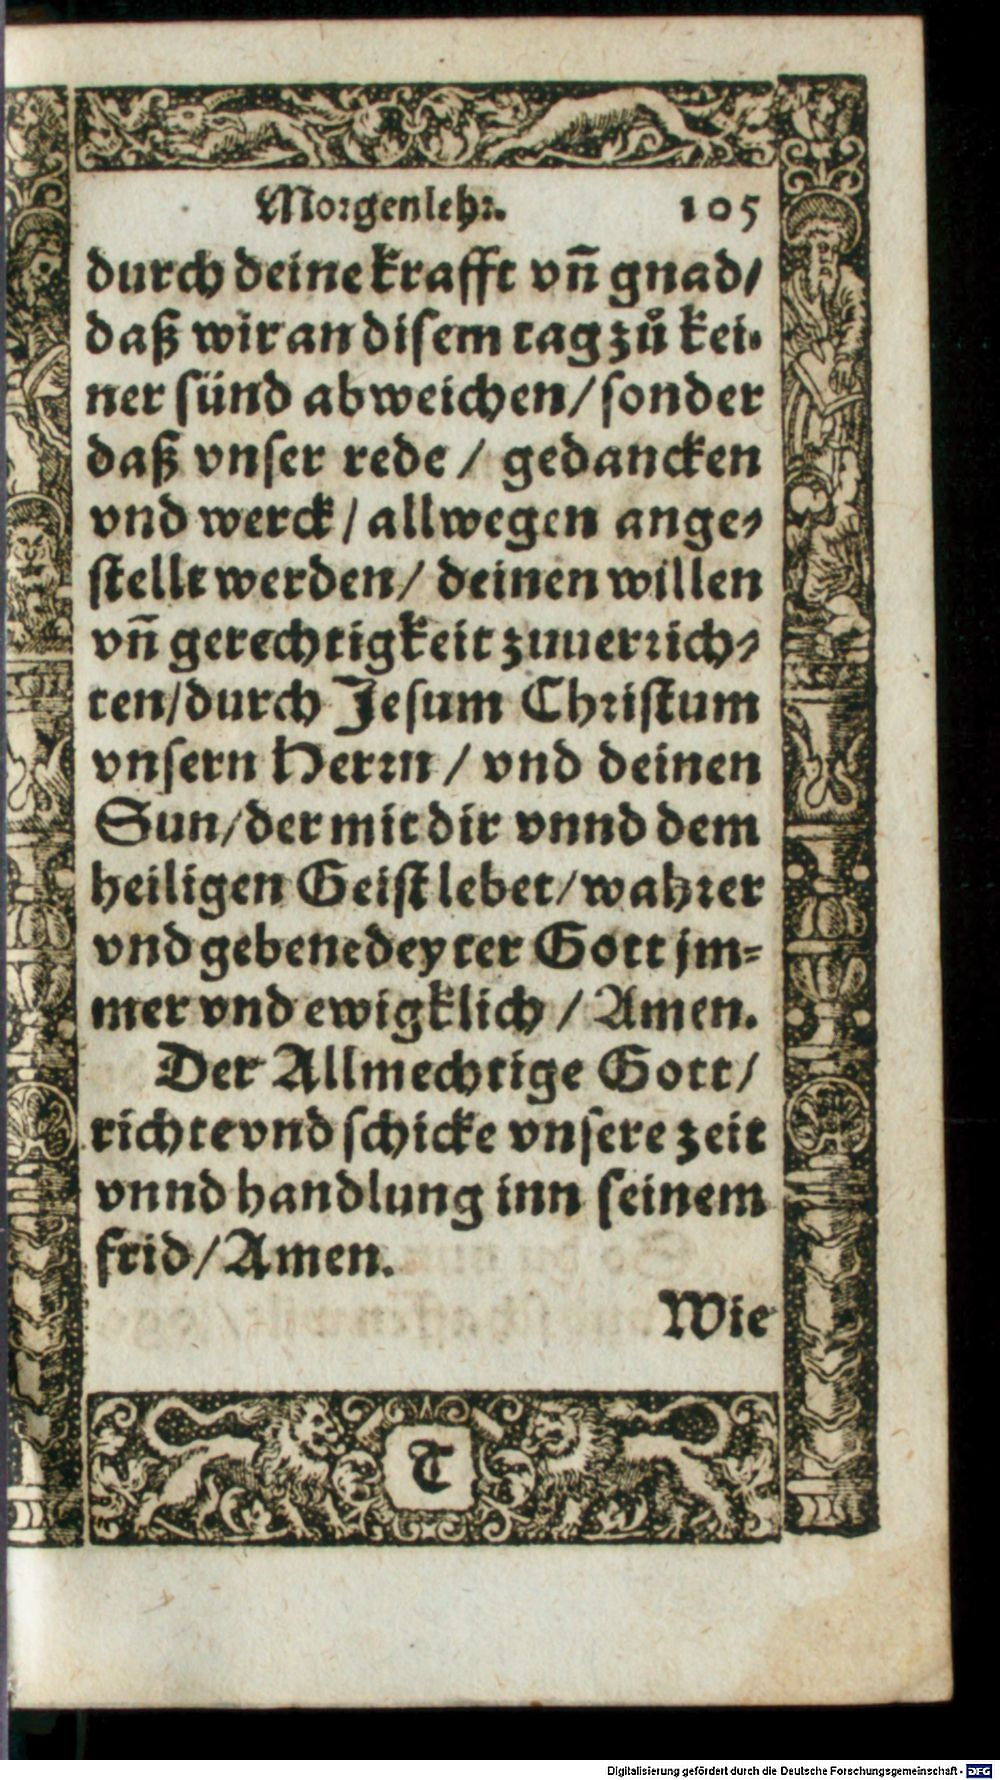 Morgenlehr. 105
durch deine krafft vñ gnad/
daß wir an disem tag zů kei-
ner sünd abweichen/ sonder
daß vnser rede / gedancken
vnd werck / allwegen ange-
stellt werden/ deinen willen
vñ gerechtigkeit zuuerrich-
ten/durch Jesum Christum
vnsern Herrn / vnd deinen
Sun/der mit dir vnnd dem
heiligen Geist lebet/wahrer
vnd gebenedeyter Gott jm-
mer vnd ewigklich / Amen.
Der Allmechtige Gott/
richte vnd schicke vnsere zeit
vnnd handlung inn seinem
frid/Amen.
Wie
T
Digitalisierung gefördert durch die Deutsche Forschungsgemeinschaft - DFG